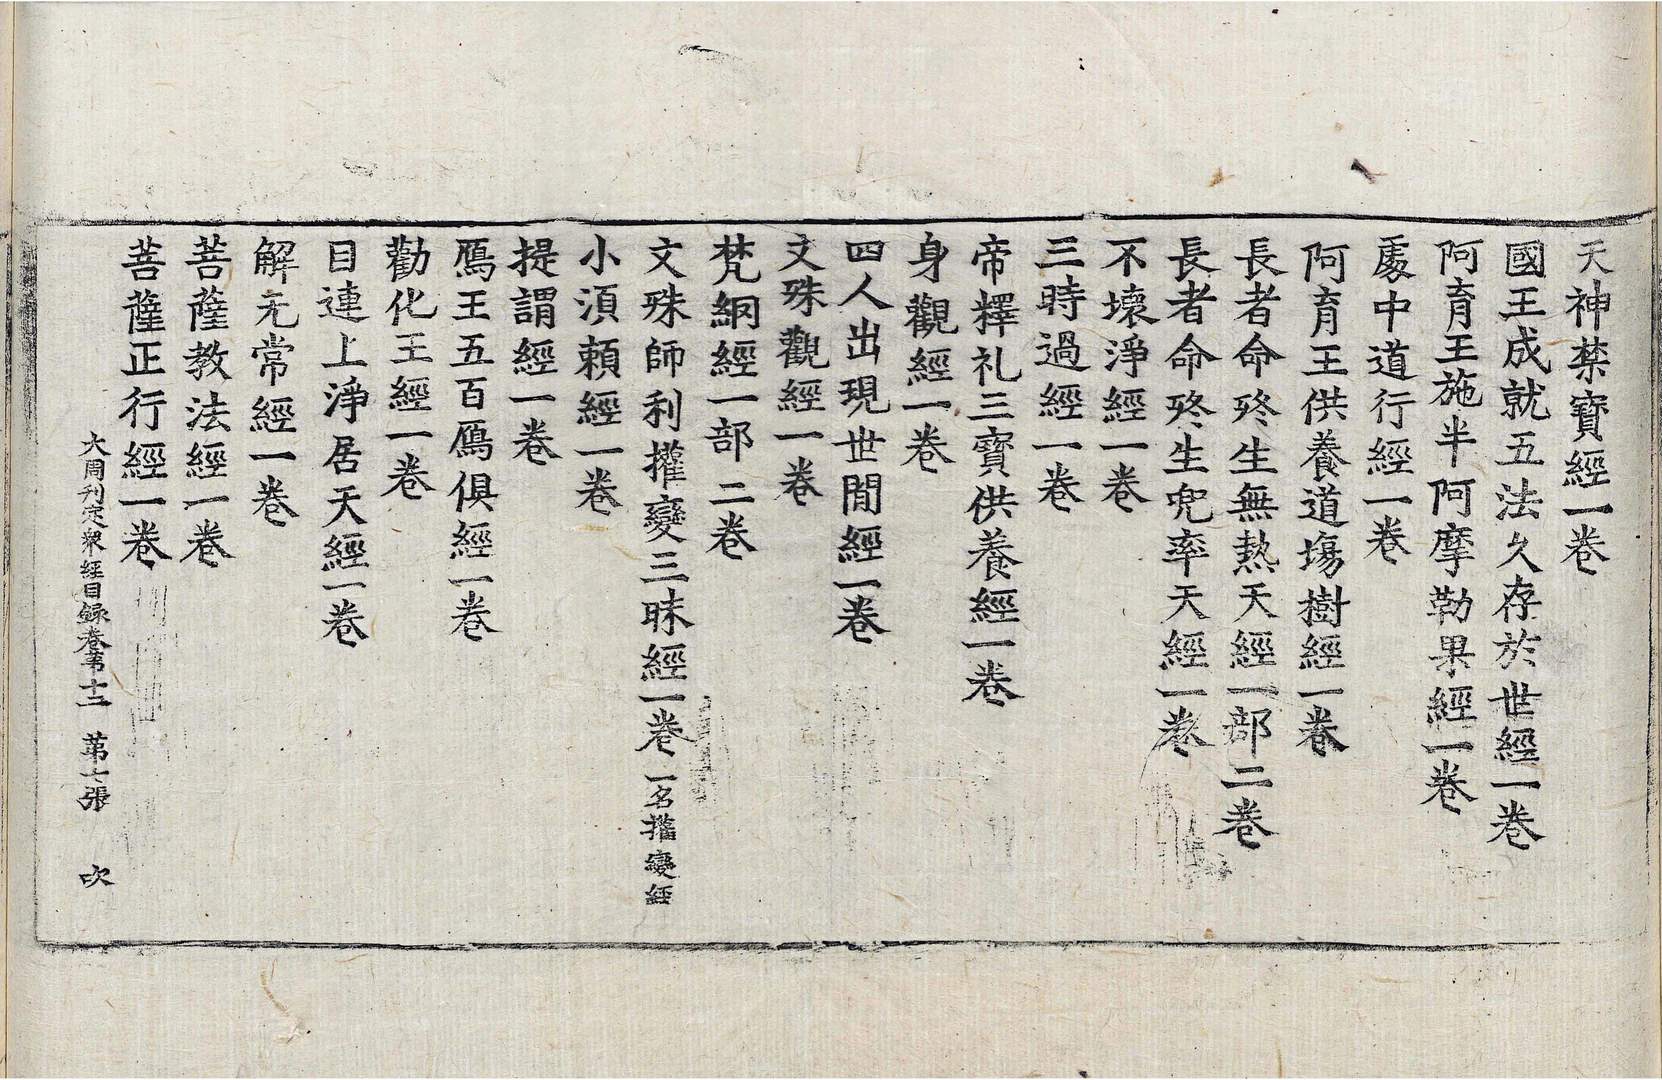 天神禁寶經一卷
國王成就五法久存於世經一卷
阿育王施半阿摩勒果經一卷
處中道行經一卷
阿育王供養道場樹經一卷
長者命終生無熱天經一部二卷
長者命終生兜率天經一卷
不壞淨經一卷
三時過經一卷
帝釋礼三寶供養經一卷
身觀經一卷
四人出現世間經一卷
文殊觀經一卷
梵網經一部二卷
文殊師利權變三昧經一卷一名權變經
小須賴經一卷
提謂經一卷
鴈王五百鴈俱經一卷
勸化王經一卷
目連上淨居天經一卷
解无常經一卷
菩薩教法經一卷
菩薩正行經一卷
大周刊定衆經目錄卷苐十二 苐七張 次